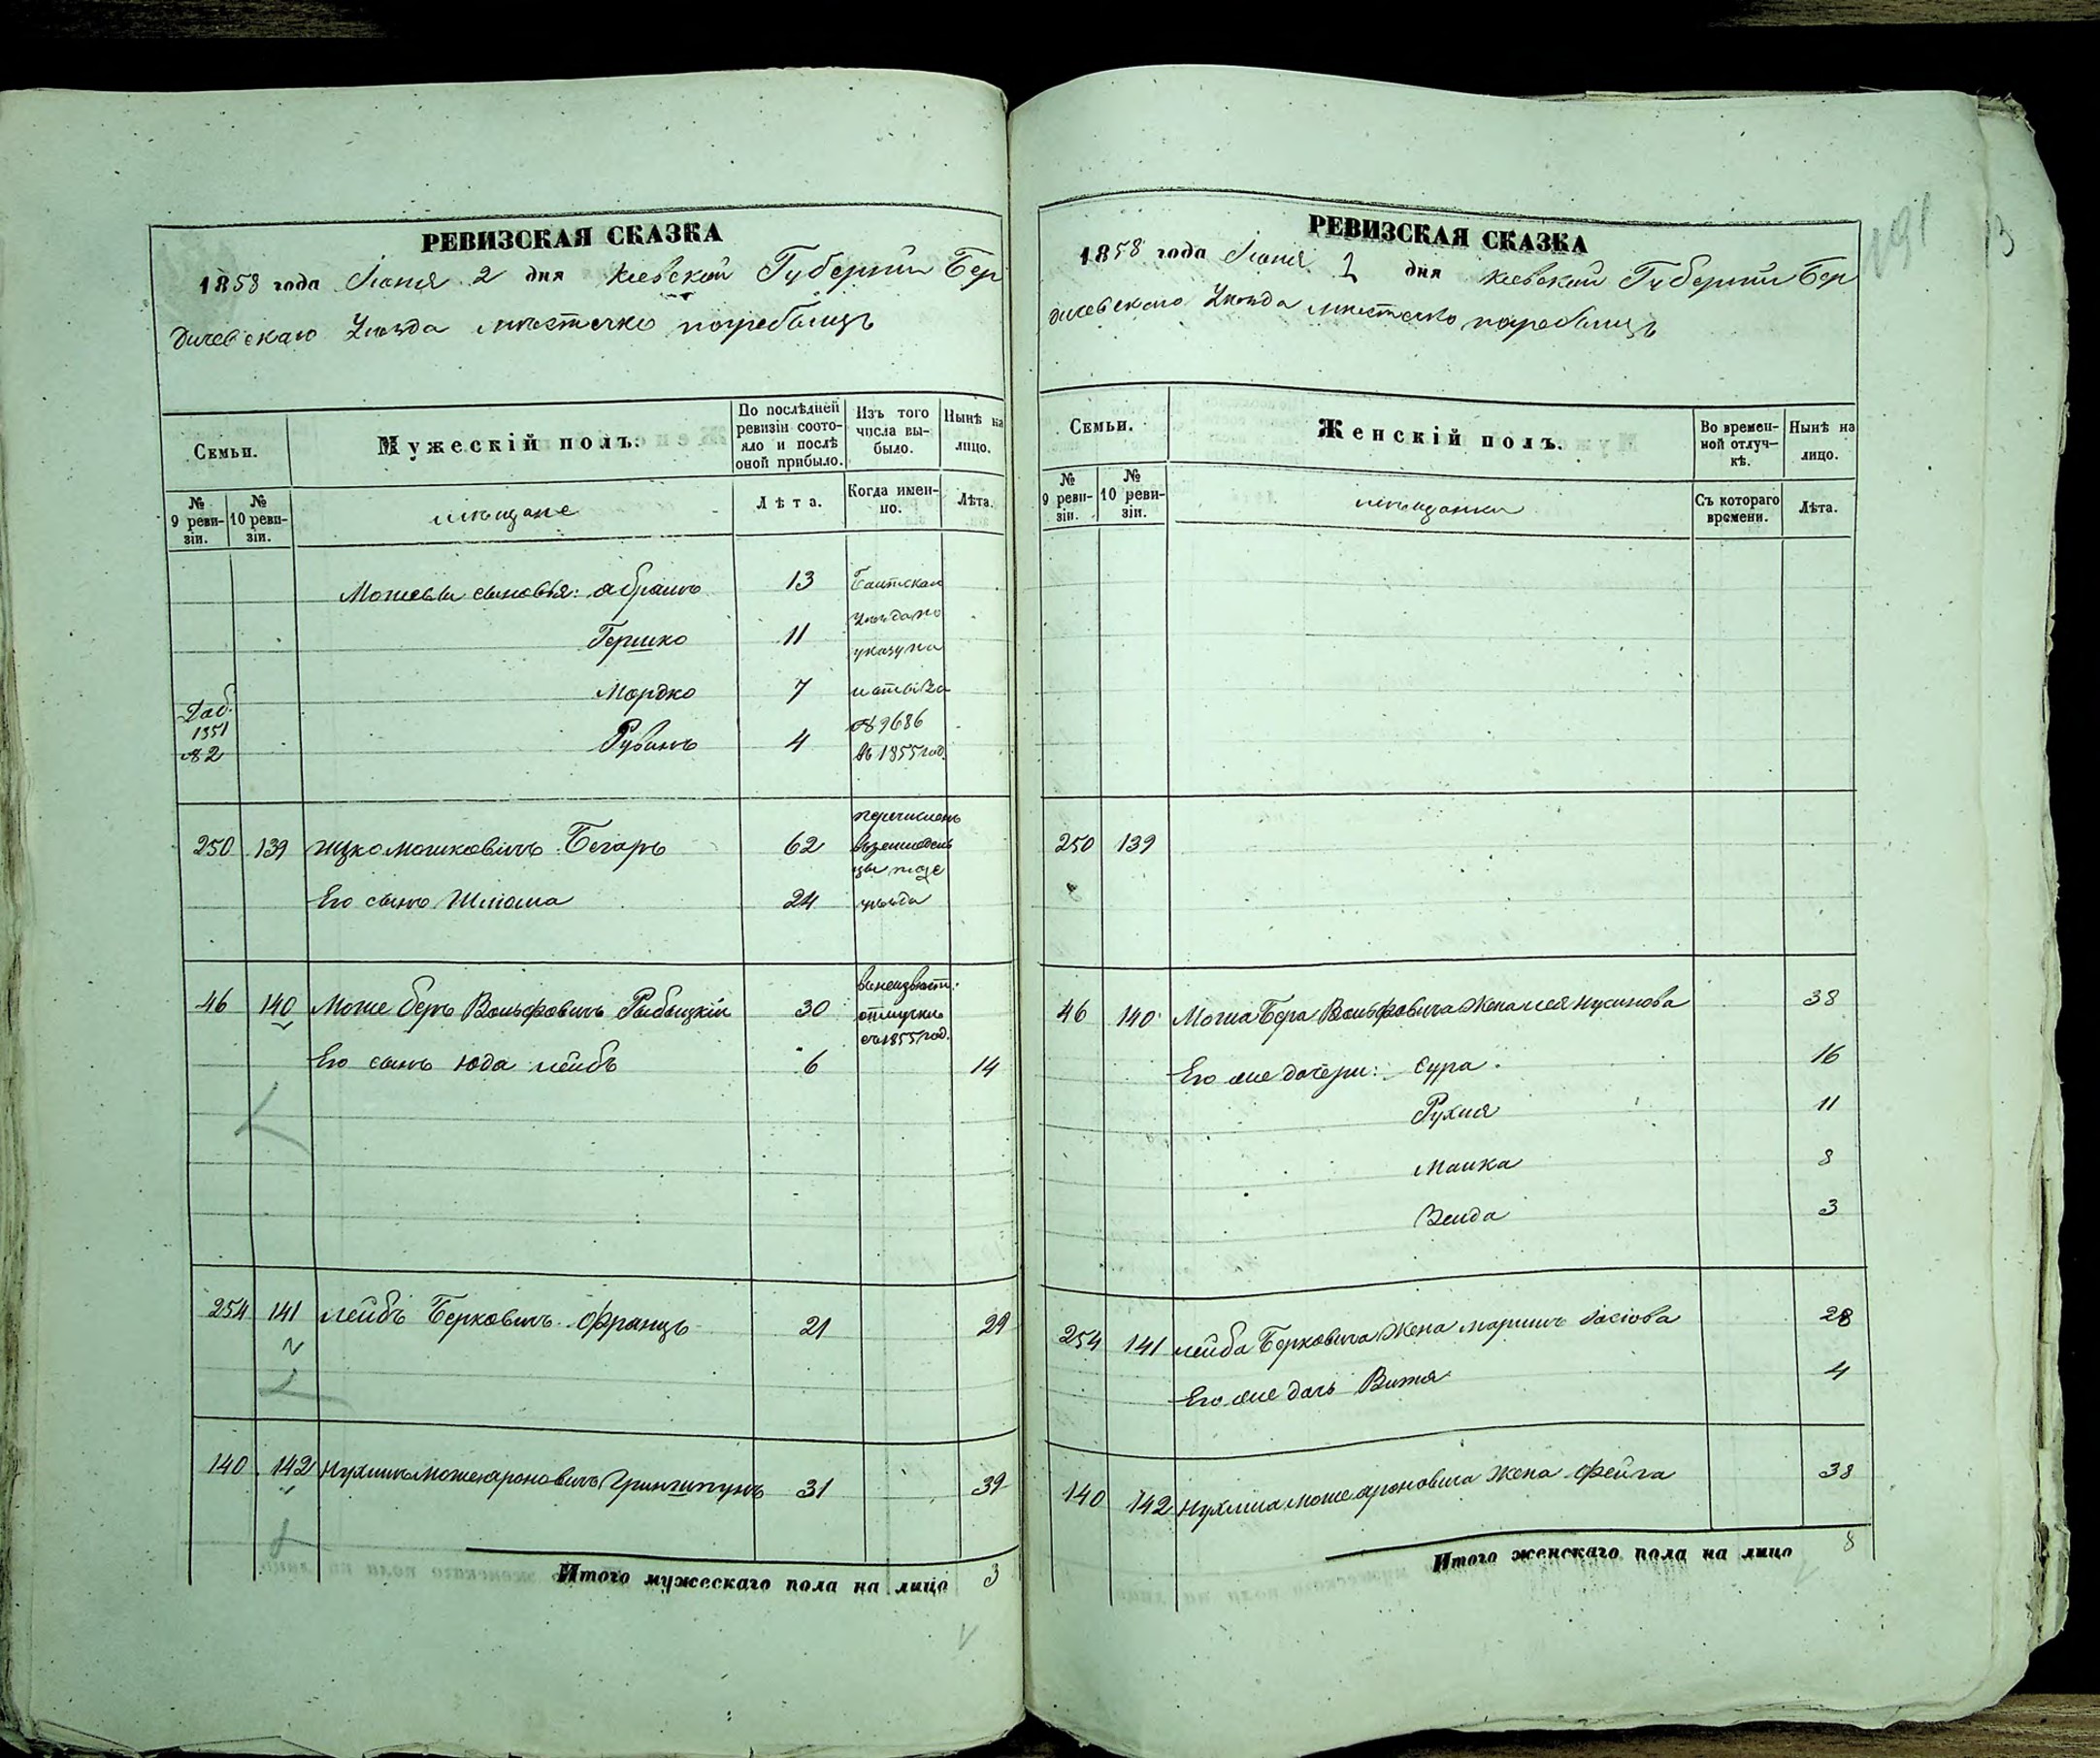 РЕВИЗСКАЯ СКАЗКА
1858 года Іюня 2 дня Кіевской Губерніи Бер
дичевскаго Уѣзда мѣстечко погребищъ
Семьи.
Мужескій полъ.
По послѣдней ревизіи состояло и послѣ оной прибыло.
Изъ того числа выбыло.
Нынѣ на лицо.
№ 9 ревизіи.
№ 10 ревизіи.
мѣщане
Лѣта.
Когда именно.
Лѣта.
Мошевы сыновья: абрамъ 13
Гершко 11 указу
Мордко 7
Рубинъ 4 №9686
въ 1855 год.
Доб.
1851
№2
250 139 Ицко Мошковичъ Богаръ 62 перечисленъ
Его сынъ Шлiома 24 уѣзда
46 140 Моше беръ Вольфовичъ Рыбацкій 30 в неизвѣст.
отлучкѣ
съ 1855 год.
Его сынъ юда лейбъ 6 14
254 141 лейбъ Берковичъ Францъ 21 29
140 142 Нухимъ моше ароновичъ Гриншпунъ 31 39
Итого мужескаго пола на лицо 3
РЕВИЗСКАЯ СКАЗКА
1858 года Іюня 2 дня Кіевской Губерніи Бер
дичевскаго Уѣзда мѣстечко погребищъ
191
13
Семьи.
Женскій полъ.
Во временной отлучкѣ.
Нынѣ на лицо.
№ 9 ревизіи.
№ 10 ревизіи.
мѣщанки
Съ котораго времени.
Лѣта.
250 139
46 140 Моша Бера Вольфовича жена лея нусинова 38
Его же дочери: Сура 16
Рухля 11
Малка 8
Зелда 3
254 141 лейба Берковича жена Маримъ Іосіова 28
Его же дочь Витя 4
140 142 Нухима моше ароновича жена Фейга 38
Итого женскаго пола на лицо 8